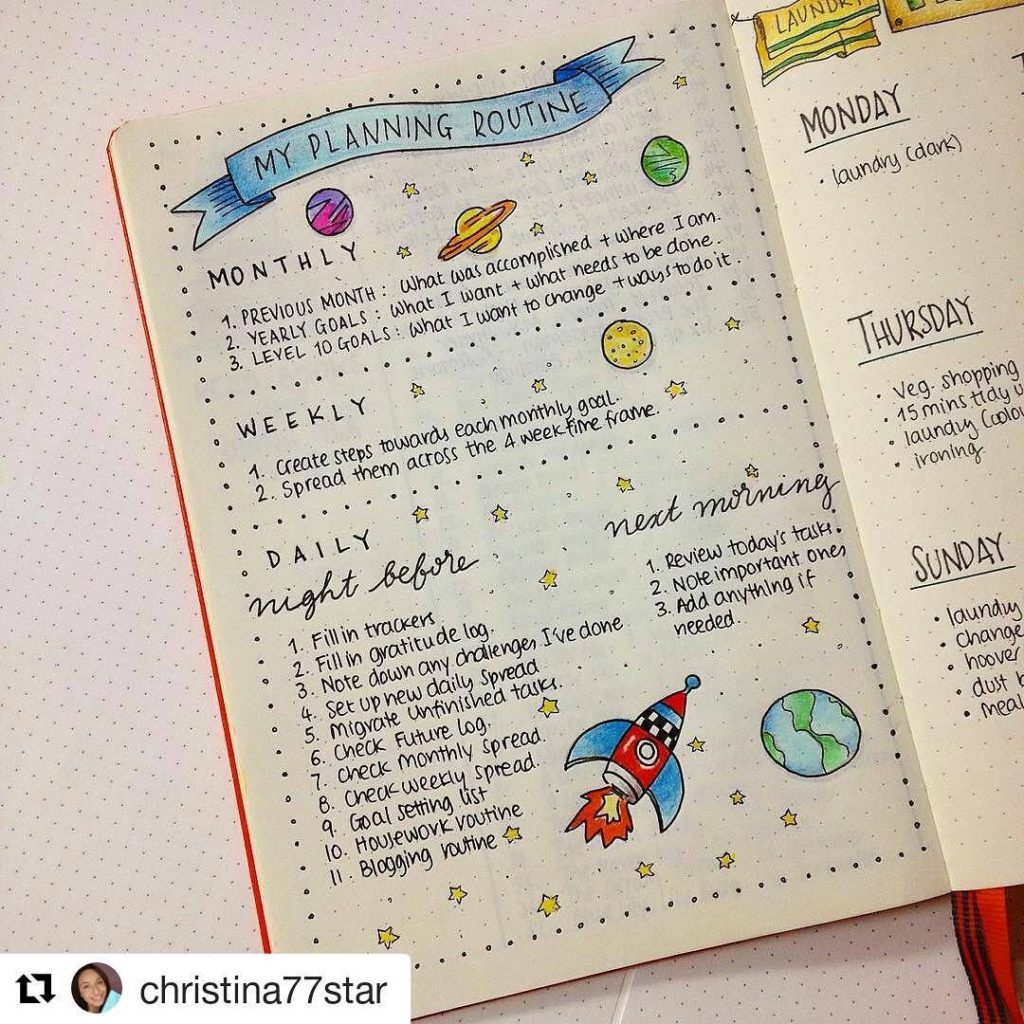 MY PLANNING ROUTINE
MONTHLY
1. PREVIOUS MONTH : What was accomplished + where I am.
2. YEARLY GOALS : What I want + what needs to be done.
3. LEVEL 10 GOALS : What I want to change + ways to do it.
WEEKLY
1. Create steps towards each monthly goal.
2. Spread them across the 4 week time frame.
DAILY
night before
1. Fill in trackers
2. Fill in gratitude log.
3. Note down any challenges I've done
4. Set up new daily spread
5. Migrate unfinished tasks.
6. Check Future Log.
7. Check monthly spread.
8. Check weekly spread.
9. Goal setting list
10. Housework routine
11. Blogging routine
next morning
1. Review today's tasks.
2. Note important ones
3. Add anything if
needed.
LAUNDRY
MONDAY
• laundry (dark)
THURSDAY
• Veg. shopping
• 15 mins tidy u
• laundry (colou
• ironing
SUNDAY
• laundry
• change
• hoover
• dust b
• meal
christina77star